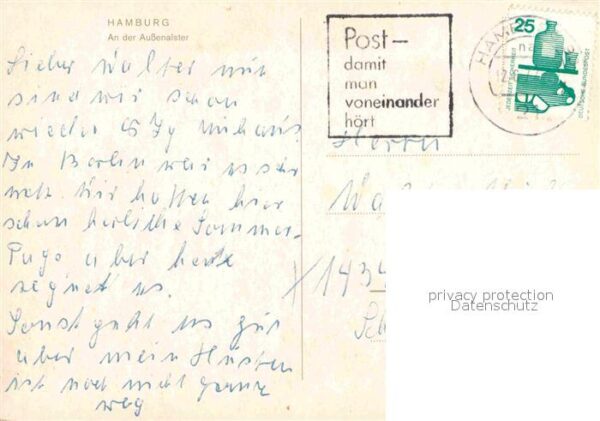 HAMBURG
An der Außenalster
Lieber Walter nun
sind wir schon
wieder
In Berlin war es sehr
nett Wir hatten hier
schon herrliche Sommer-
Tage aber heute
regnet es.
Sonst geht es gut
aber mein Husten
ist noch nicht ganz
weg
Post-
damit
man
voneinander
hört
25
JEDERZEIT SICHERHEIT
DEUTSCHE BUNDESPOST
Herrn
privacy protection
Datenschutz